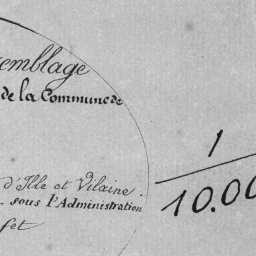 emblage
de la Commune de
d'Ille et Vilaine
sous l'Administration
fet
1
10.00